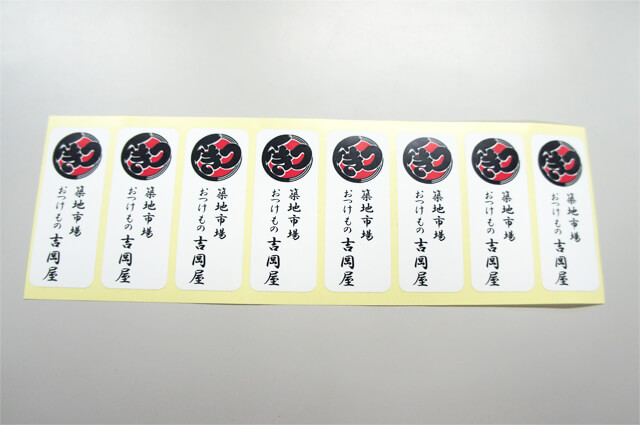 築地市場
おつけもの 吉岡屋
築地市場
おつけもの 吉岡屋
築地市場
おつけもの 吉岡屋
築地市場
おつけもの 吉岡屋
築地市場
おつけもの 吉岡屋
築地市場
おつけもの 吉岡屋
築地市場
おつけもの 吉岡屋
築地市場
おつけもの 吉岡屋